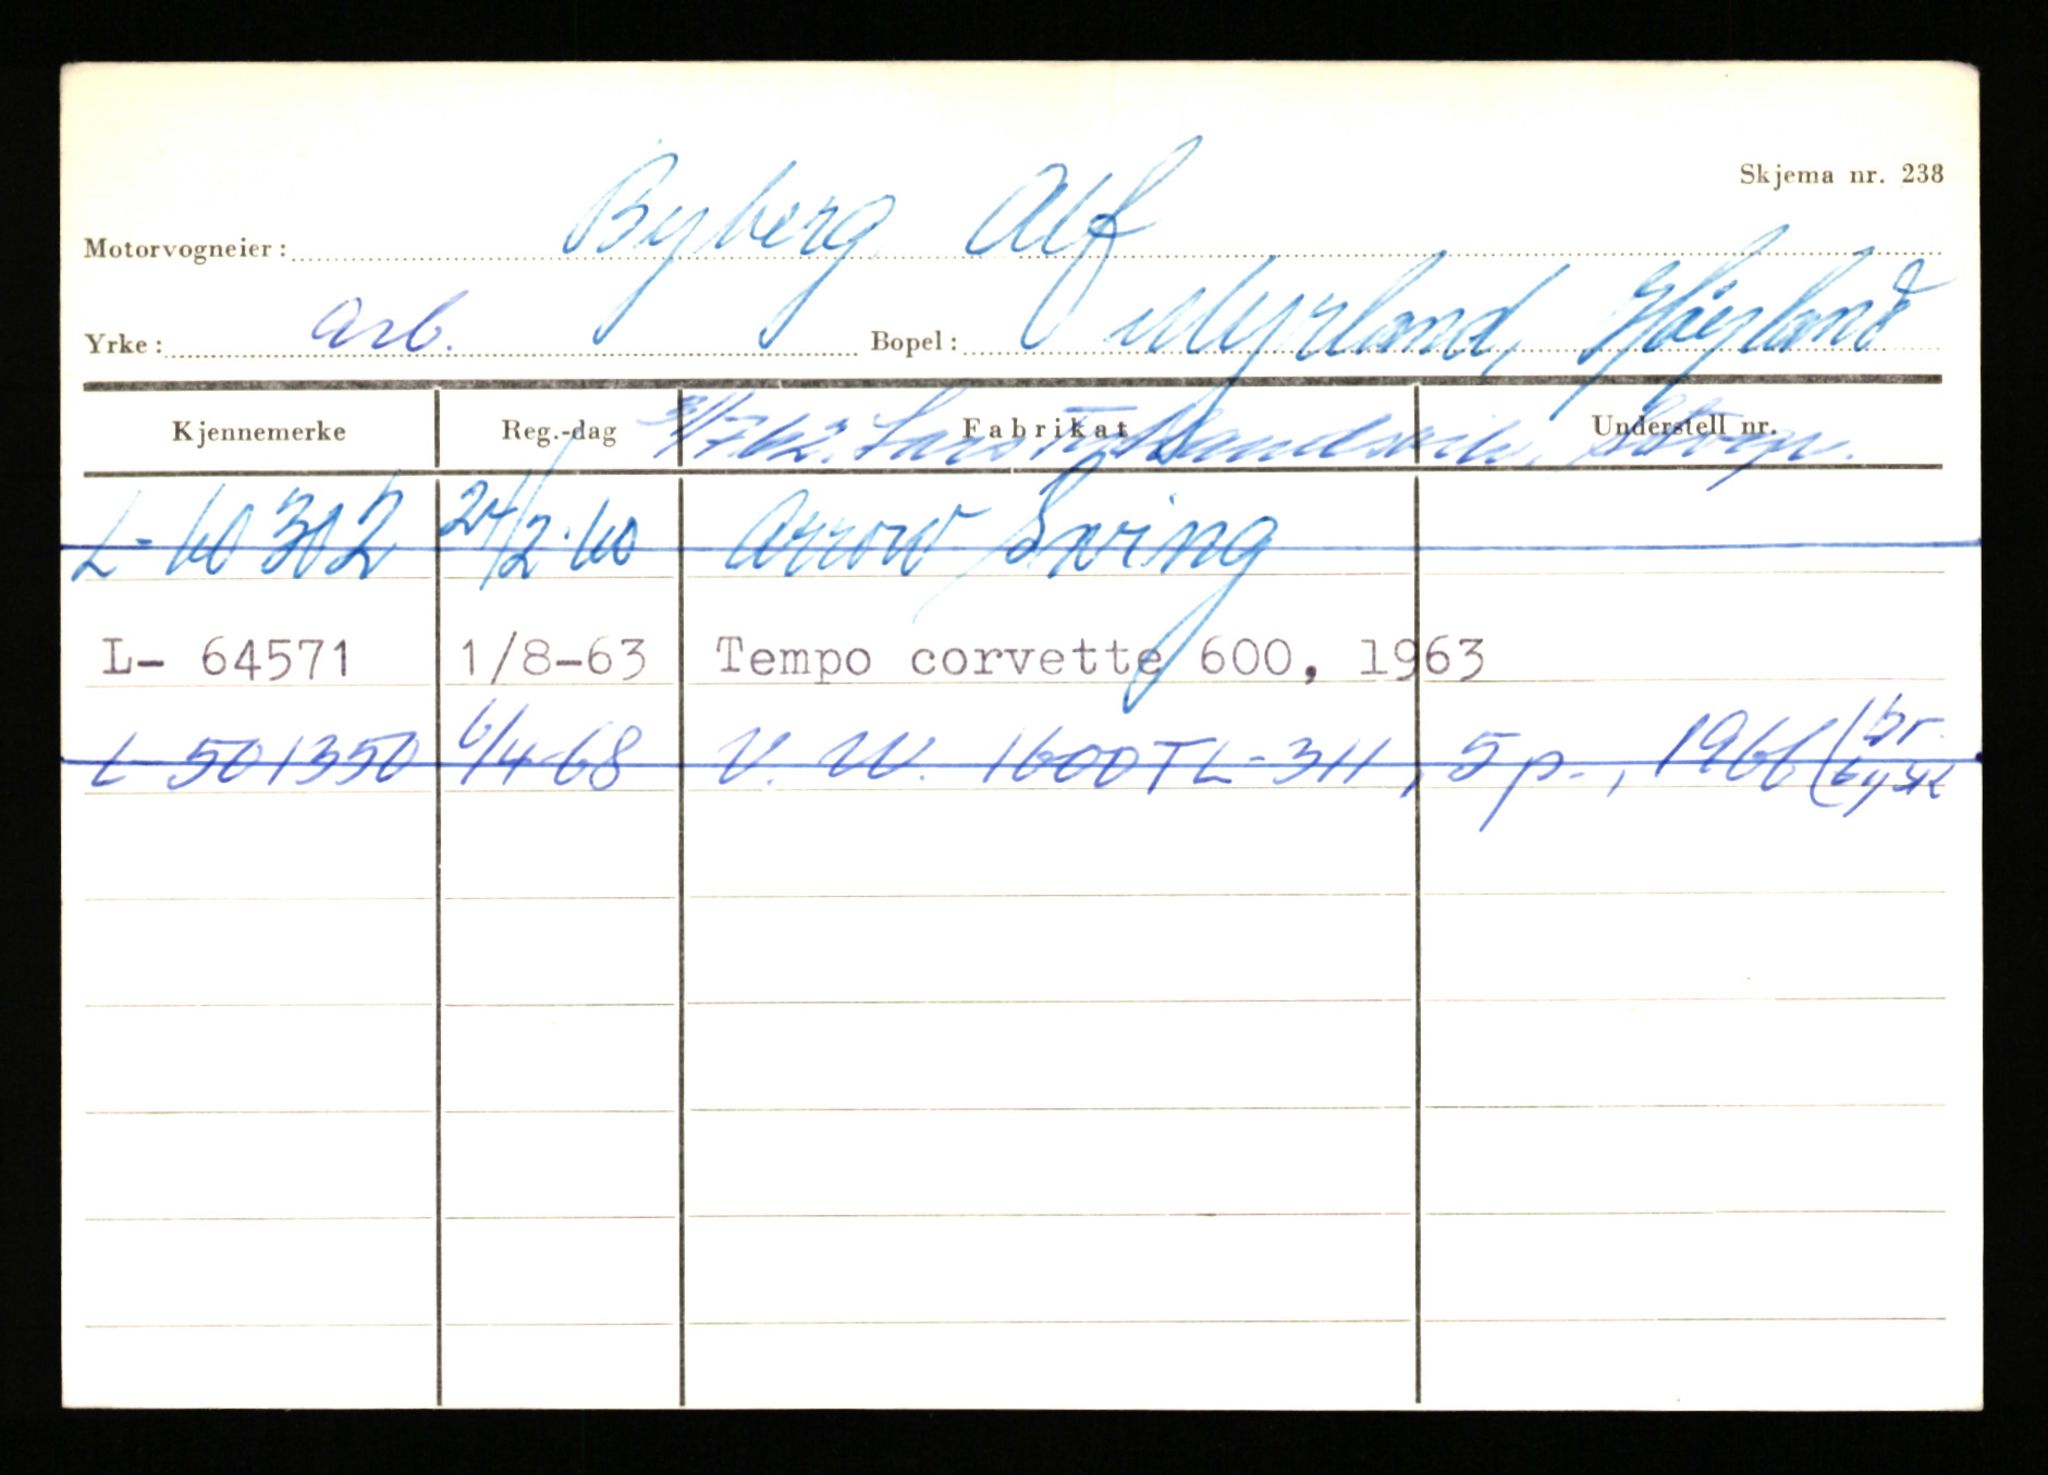 Skjema nr. 238
Motorvogneier: Byberg Alf
Yrke: arb. Bopel: Myrland, Høyland
Kjennemerke Reg.-dag Fabrikat Understell nr.
L-60302 24/2.60 Arrow Swing
L- 64571 1/8-63 Tempo corvette 600, 1963
L 501350 6/4-68 V. W. 1600TL-311, 5 p., 1966 (br.